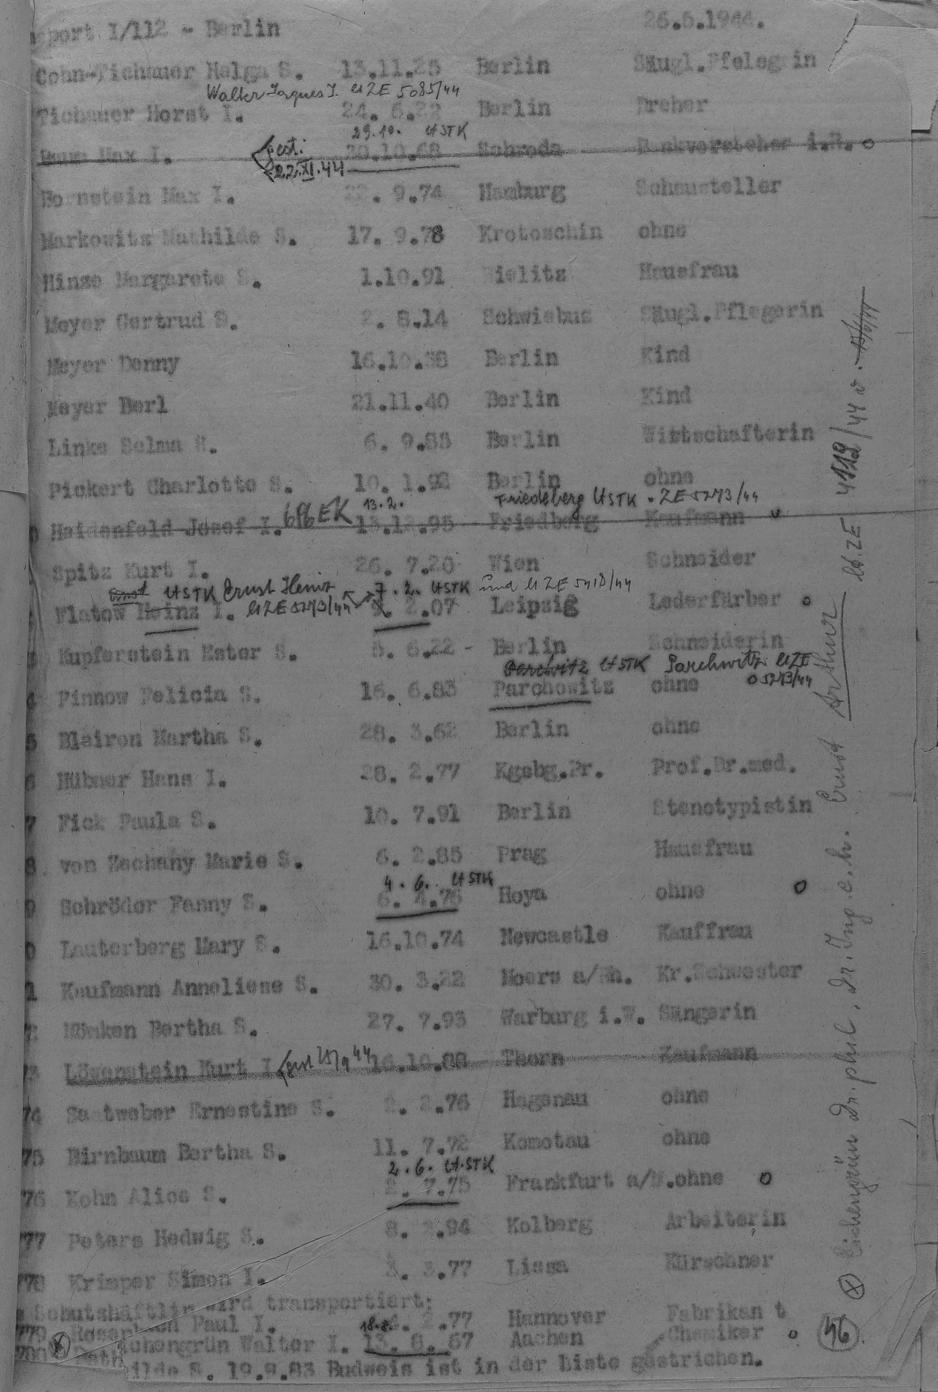 sport I/112 - Berlin 26.5.1944.
Cohn-Tichauer Helga S. 13.11.25 Berlin Säugl.Pfelegrin
Walter Jaques I. lt ZE 5085/44
Tichauer Horst I. 24. 6.22 Berlin Dreher
29.10. lt STK
Baum Max I. gest. 30.10.68 Schroda Bankvorsteher i.R. o
22.XI.44
Bornstein Max I. 9.74 Hamburg Schausteller
Markowitz Mathilde S. 17. 9.78 Krotoschin ohne
Hinze Margarete S. 1.10.91 Bielitz Hausfrau
Meyer Gertrud S. 2. 8.14 Schwiebus Säugl.Pflegerin
Meyer Denny 16.10.38 Berlin Kind
Meyer Berl 21.11.40 Berlin Kind
Linke Selma S. 6. 9.85 Berlin Wirtschafterin
Pickert Charlotte S. 10. 1.92 Berlin ohne
13.2. Friedeberg lt STK. ZE 5273/44
Heidenfeld Josef I. 616 EK 13.12.95 Friedberg Kaufmann
Spitz Kurt I. 26. 7.20 Wien Schneider
lt STK Ernst Heinz 7. 2. lt STK und lt ZE 5213/44
lt ZE 5273/44
Flatow Heinz I. 2.07 Leipzig Lederfärber o
Kupferstein Ester S. 5. 6.22 - Berlin Schneiderin
Parchwitz lt STK Parchwitz lt ZE
o 5273/44
Finnow Felicia S. 16. 6.83 Parchowitz ohne
Bleiron Martha S. 28. 3.62 Berlin ohne
Hübner Hans I. 28. 2.77 Kgsbg.Pr. Prof.Dr.med.
7 Fick Paula S. 10. 7.91 Berlin Stenotypistin
8 von Zschany Marie S. 6. 2.85 Prag Hausfrau
4. 6. lt STK
9 Schröder Fanny S. 6. 4.76 Hoya ohne o
0 Lauterberg Mary S. 16.10.74 Newcastle Kauffrau
1 Kaufmann Anneliese S. 30. 3.22 Moers a/Rh. Kr.Schwester
Mömken Bertha S. 27. 7.93 Warburg i.W. Sängerin
Löwenstein Kurt I. 16.10.88 Thorn Kaufmann
74 Saatweber Ernestine S. 2. 2.76 Hagenau ohne
75 Birnbaum Bertha S. 11. 7.72 Komotau ohne
2. 6. lt. STK
76 Kohn Alice S. 2. 7.75 Frankfurt a/M.ohne o
77 Peters Hedwig S. 8. 2.94 Kolberg Arbeiterin
78 Krimper Simon I. 3. 3.77 Lissa Kürschner
Schutzhäftlin wird transportiert:
Paul I. 2.77 Hannover Fabrikan t
18.8.
chengrün Walter I. 13. 8. 67 Aachen Chemiker o
ilde S. 19.9.83 Budweis ist in der Liste gestrichen.
46
Eichengrün Dr. phil., Dr. Ing. e. h. Ernst Arthur lt ZE 4119/44